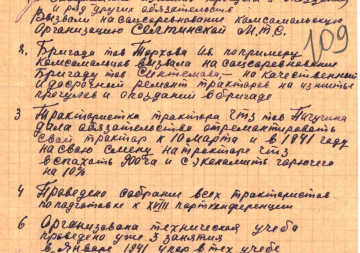 и ряд других обязательств
Вызвали на соцсоревнование комсомольскую
Организацию М.Т.С.
109
2. Бригада тов Ив. по примеру
Комсомольцев вызвала на соцсоревнование
Бригаду тов на качественный
и досрочный ремонт тракторов на изжитье
прогулов и опозданий в бригаде
3 Трактористка трактора ЧТЗ тов Пичугина
дала обязательство отремонтировать
свой трактор к 10 марта в 1941 году
на свою смену на тракторе ЧТЗ
вспахать 900га и сэкономить горючего
на 10%
4 Проведено собрание всех трактористов
по подготовке к XVIII партконференции
6 Организована техническая учеба
проведено уже 3 занятия
в Январе 1941 упор в тех учебе